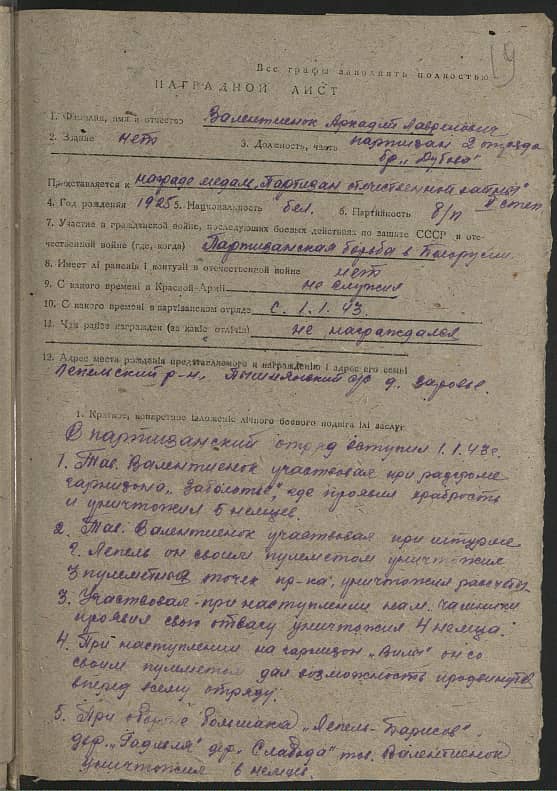 19
Все графы заполнять полностью
НАГРАДНОЙ ЛИСТ
1. Фамилия, имя и отчество Валентиенок Аркадий Лавренович
2. Звание нет 3. Должность, часть партизан 2 отряда
бр. „Дубова"
Представляется к награде медал. „Партизан отечественной войны"
II степ
4. Год рождения 1925 5. Национальность бел. 6. Партийность б/п
7. Участие в гражданской войне, последующих боевых действиях по защите СССР и оте-
чественной войне (где, когда) Партизанская борьба в Белоруссии.
8. Имеет лі ранения і контузіі в отечественной войне нет
9. С какого времени в Красной Арміі не служил
10. С какого времени в партізанском отряде с. 1.1.43.
11. Чем ранее награжден (за какіе отлічія) не награждался
12. Адрес места рождения представляемого к награждению і адрес его семьі
Лепельский р-н, Пышнянский с/с д. Заровье.
1. Краткое, конкретное ізложеніе лічного боевого подвіга ілі заслуг
В партизанский отряд вступил 1.1.43 г.
1. Тов. Валентиенок участвовал при разгроме
гарнизона „Заболотье", где проявил храбрость
и уничтожил 5 немцев.
2. Тов. Валентиенок участвовал при штурме
г. Лепель он своим пулеметом уничтожил
3 пулеметных точек пр-ка, уничтожил расчеты.
3. Участвовал при наступлении на м. Чашники
проявил свою отвагу уничтожил 4 немца.
4. При наступлении на гарнизон „Вилы" он со
своим пулеметом дал возможность продвинутся
вперед всему отряду.
5. При обороне большака „Лепель-Борисов"
дер. дер. „Слабода" тов. Валентиенок
уничтожил 6 немцев.